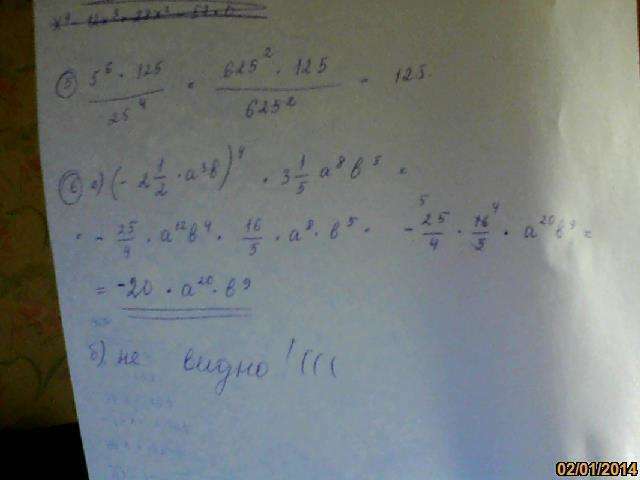 5) 5⁵ · 125 / 25⁴ = 625² · 125 / 625² = 125.
6) а) (- 2 1/2 · a³b)⁴ · 3 1/5 a⁸b⁵ =
= - 25/4 · a¹²b⁴ · 16/5 · a⁸ · b⁵ = - 25/4 · 16/5 · a²⁰b⁹ =
= -20 · a²⁰ · b⁹
б) не видно! (((
02/01/2014